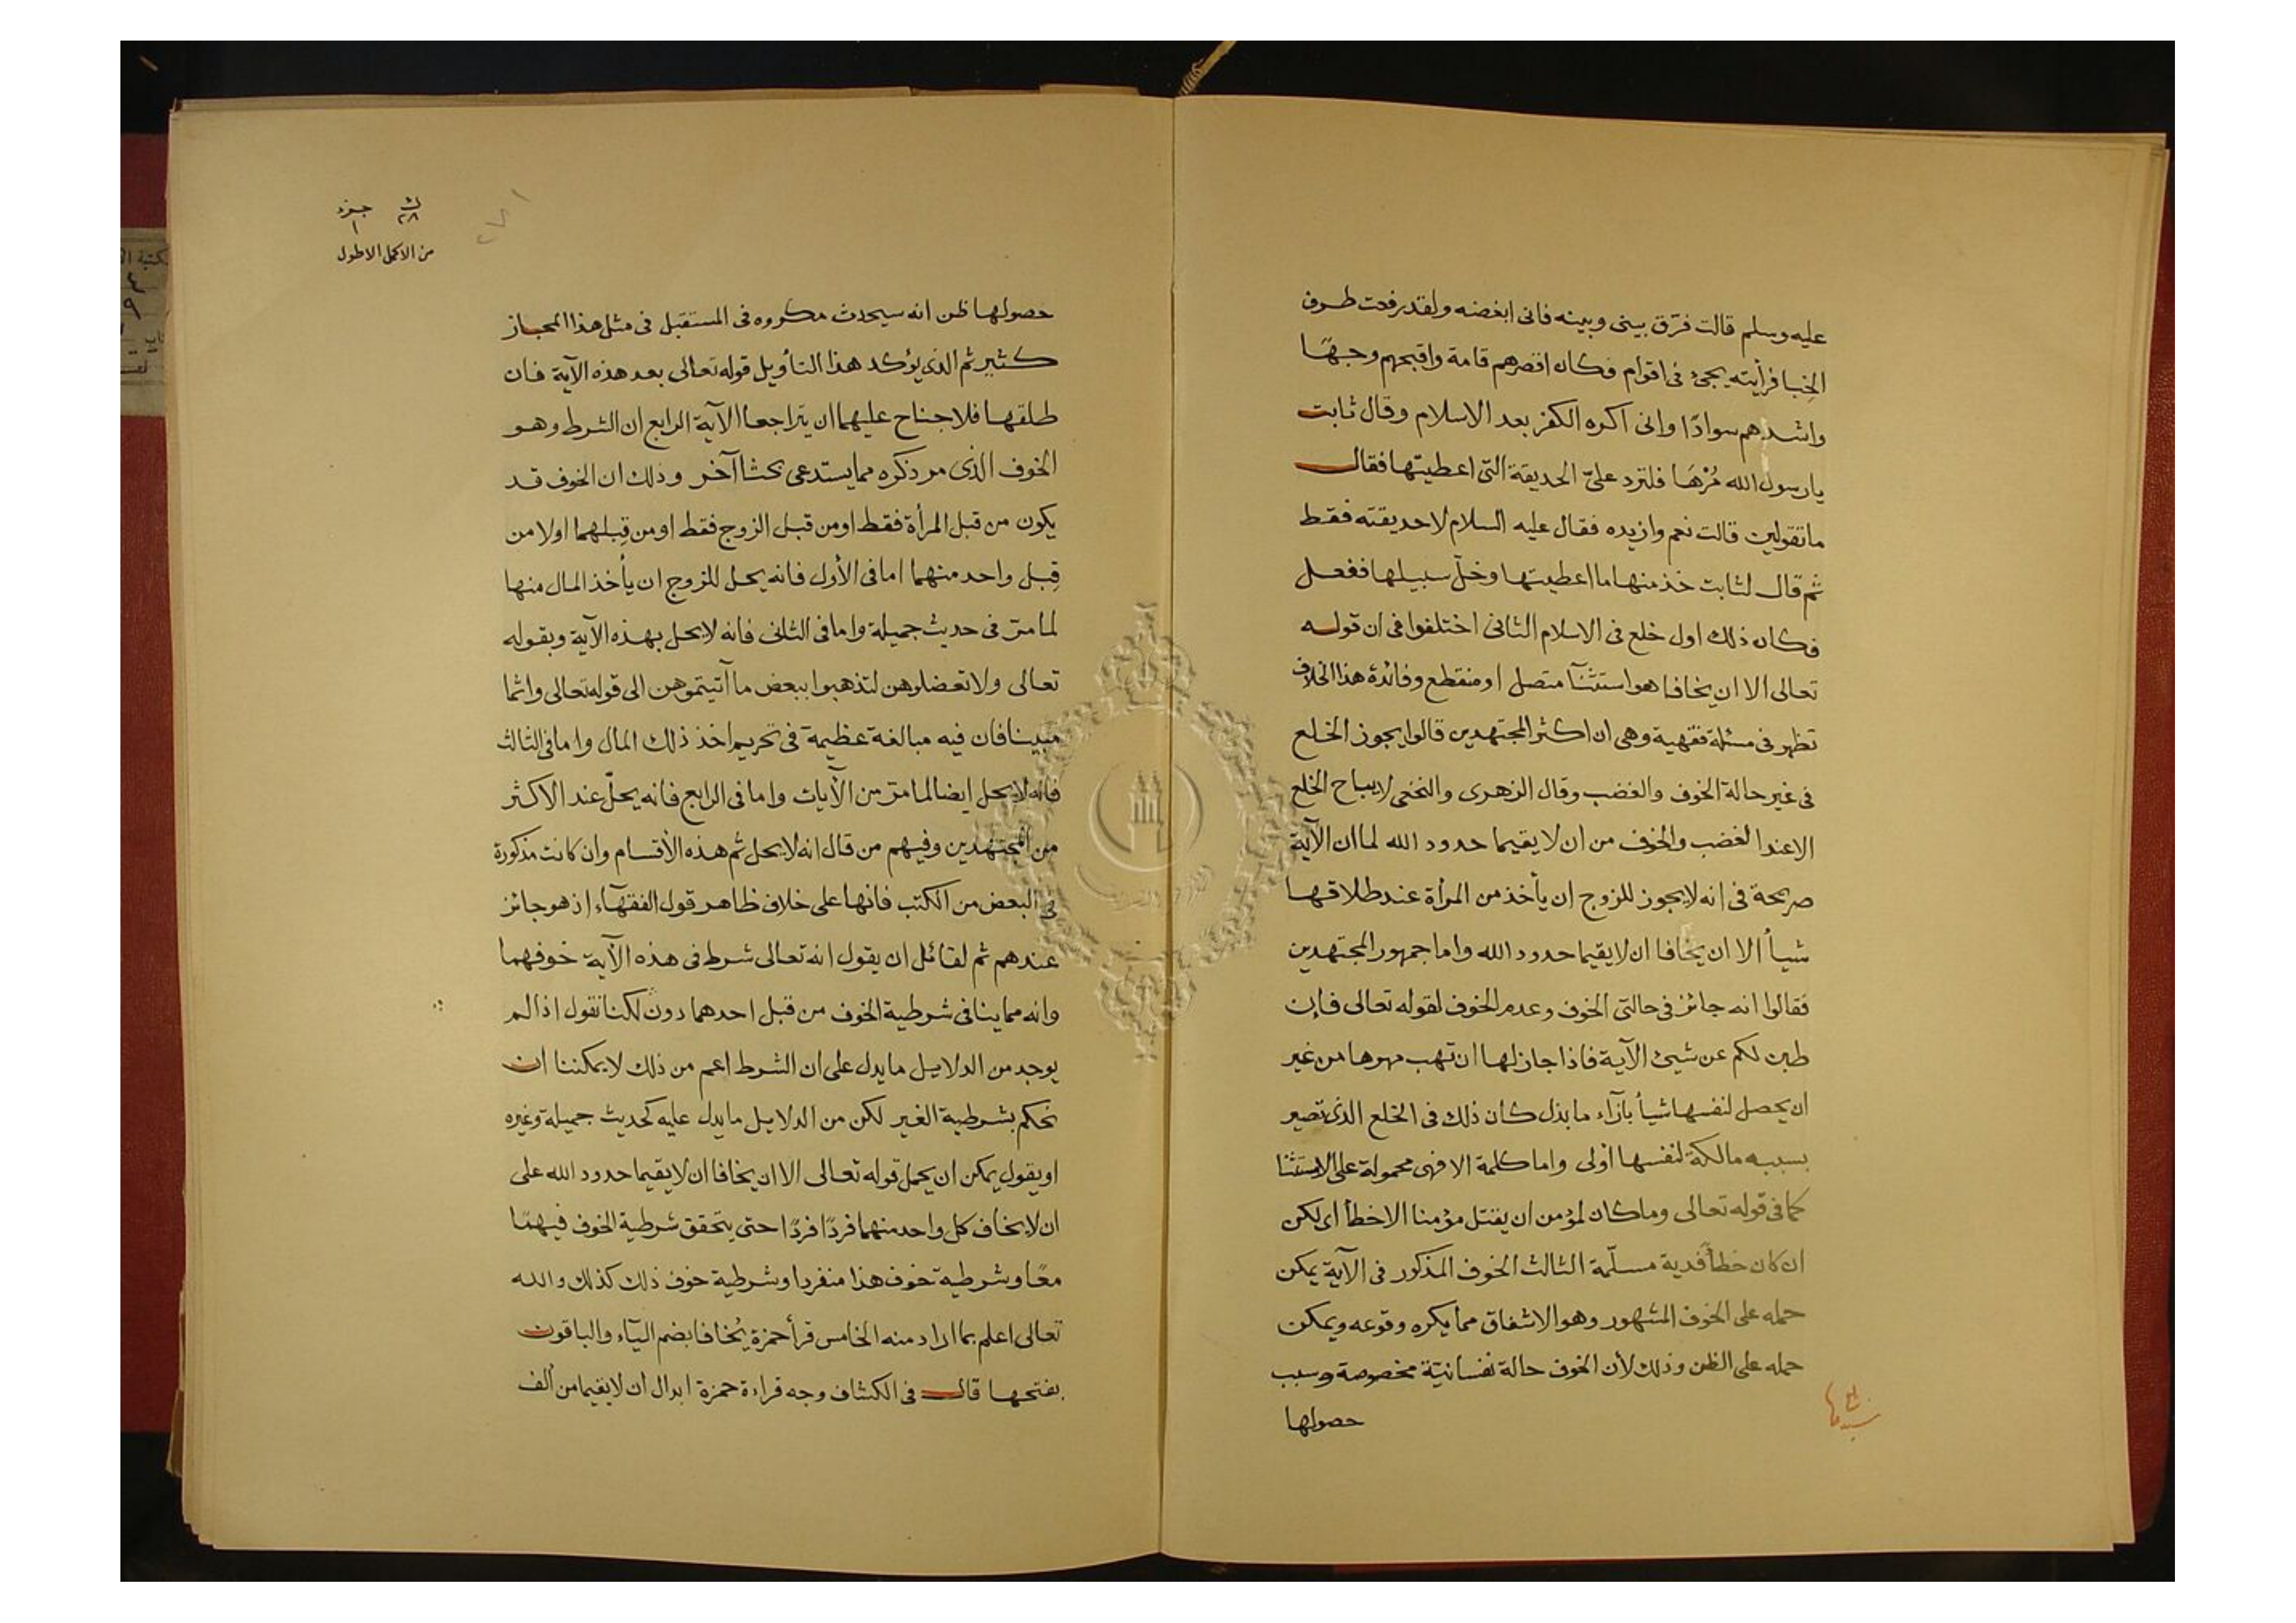 عليه وسلم قالت فرّق بينى وبينه فانى ابغضه ولقد رفعت طرف
الخبا فرأيته يجئ فى اقوام فكان اقصرهم قامة واقبحهم وجهًا
واشدهم سوادًا وانى اكره الكفر بعد الاسلام وقال ثابت
يا رسول الله مُرْهَا فلترد علىّ الحديقة التى اعطيتها فقال
ما تقولين قالت نعم وازيده فقال عليه السلام لا حديقته فقط
ثم قال لثابت خذ منها ما اعطيتها وخلّ سبيلها ففعل
فكان ذلك اول خلع فى الاسلام الثانى اختلفوا فى ان قوله
تعالى الا ان يخافا هو استثنآ متصل او منقطع وفائدة هذا الخلاف
تظهر فى مسئلة فقهية وهى ان اكثر المجتهدين قالوا يجوز الخلع
فى غير حالة الخوف والغضب وقال الزهرى والنخعى لا يباح الخلع
الا عند الغضب والخوف من ان لا يقيما حدود الله لما ان الآية
صريحة فى انه لا يجوز للزوج ان يأخذ من المرأة عند طلاقها
شيأ الا ان يخافا ان لا يقيما حدود الله واما جمهور المجتهدين
فقالوا انه جائز فى حالتى الخوف وعدم الخوف لقوله تعالى فإن
طبن لكم عن شيئ الآية فاذا جاز لها ان تهب مهرها من غير
ان يحصل لنفسها شيأ بازآء ما بذل كان ذلك فى الخلع الذى تصير
بسببه مالكة لنفسها أولى واما كلمة الا فهى محمولة على الاستثنا
كما فى قوله تعالى وما كان لمؤمن ان يقتل مؤمنا الا خطأ اى لكن
ان كان خطأ فدية مسلّمة الثالث الخوف المذكور فى الآية يمكن
حمله على الخوف المشهور وهو الاشفاق مما يكره وقوعه ويمكن
حمله على الظن وذلك لأن الخوف حالة نفسانيّة مخصوصة وسبب
حصولها
ث جزء
٢٨ ١
من الاكمل الاطول
حصولها ظن انه سيحدث مكروه فى المستقبل فى مثل هذا المجاز
كثير ثم الذى يؤكد هذا التأويل قوله تعالى بعد هذه الآية فان
طلقها فلا جناح عليهما ان يتراجعا الآية الرابع ان الشرط وهو
الخوف الذى مر ذكره مما يستدعى بحثا آخر وذلك ان الخوف قد
يكون من قبل المرأة فقط او من قبل الزوج فقط او من قِبلهما او لا من
قِبل واحد منهما اما فى الأول فانه يحل للزوج ان يأخذ المال منها
لما مرّ فى حديث جميلة واما فى الثانى فانه لا يحل بهذه الآية وبقوله
تعالى ولا تعضلوهن لتذهبوا ببعض ما آتيتموهن الى قوله تعالى واثما
مبينا فان فيه مبالغة عظيمة فى تحريم اخذ ذلك المال واما فى الثالث
فانه لا يحل ايضا لما مرّ من الآيات واما فى الرابع فانه يحلّ عند الاكثر
من المجتهدين وفيهم من قال انه لا يحل ثم هذه الأقسام وان كانت مذكورة
فى البعض من الكتب فانها على خلاف ظاهر قول الفقهآء اذ هو جائز
عندهم ثم لقائل ان يقول انه تعالى شرط فى هذه الآية خوفهما
وانه مما ينافى شرطية الخوف من قبل احدهما دون لكنا نقول اذا لم
يوجد من الدلايل ما يدل على ان الشرط اعم من ذلك لا يمكننا ان
نحكم بشرطية الغير لكن من الدلايل ما يدل عليه كحديث جميلة وغيره
او يقول يمكن ان يحمل قوله تعالى الا ان يخافا ان لا يقيما حدود الله على
ان لا يخاف كل واحد منهما فردًا فردًا حتى يتحقق شرطية الخوف فيهمَا
معًا وشرطية خوف هذا منفردا وشرطية خوف ذلك كذلك والله
تعالى اعلم بما اراد منه الخامس قرأ حمزة يُخافا بضم اليآء والباقون
بفتحها قال فى الكشاف وجه قراءة حمزة ابدال ان لا يقيما من ألف